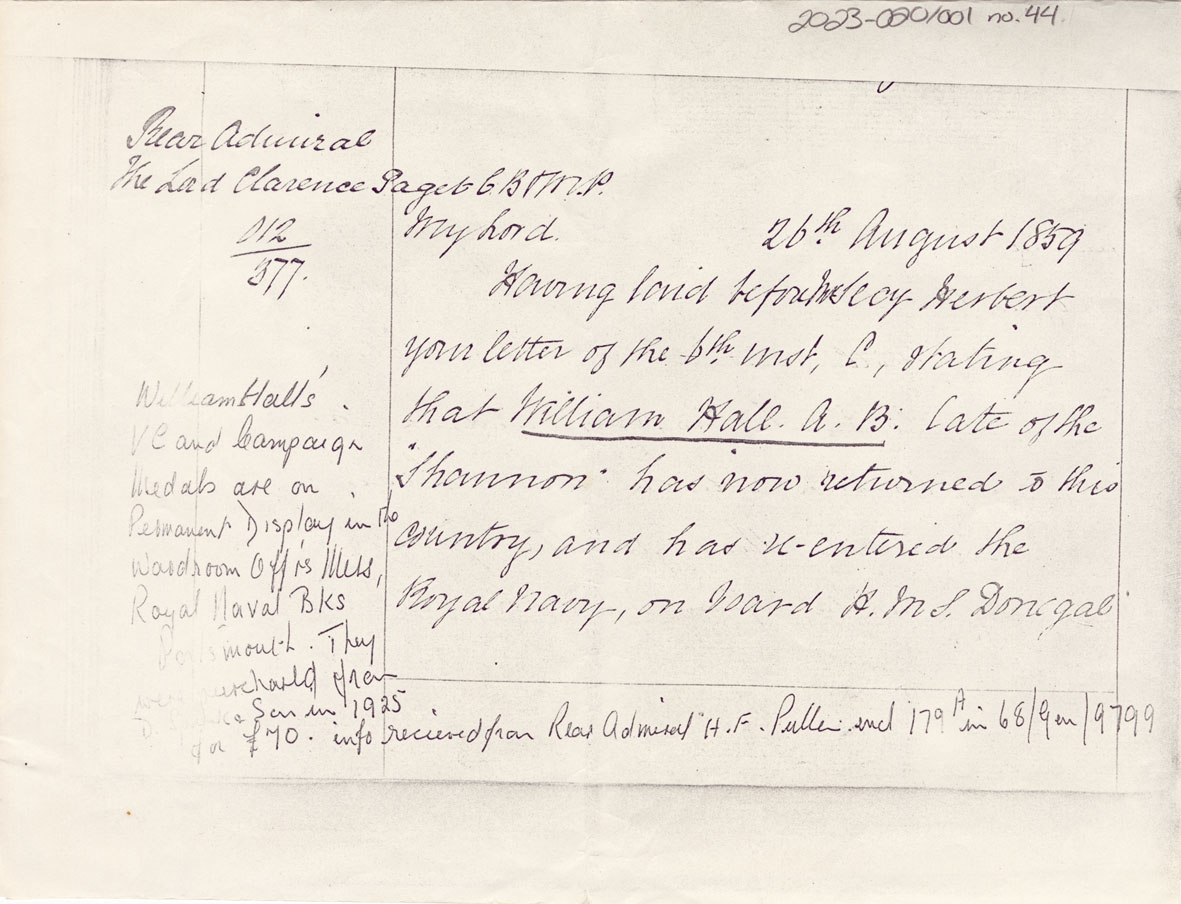 2023-020/001 no. 44.
Rear Admiral
The Lord Clarence Paget C.B & M.P.
012
377.
My Lord. 26th August 1859
Having laid before Mr Secy Herbert
your letter of the 6th inst, C, stating
that William Hall. A. B. late of the
"Shannon" has now returned to this
country, and has re-entered the
Royal Navy, on board H.M.S. Donegal
William Hall's
VC and Campaign
Medals are on
Permanent Display in the
Wardroom Off'rs Mess,
Royal Naval Bks
Portsmouth. They
were purchased from
& Son in 1925
for £70. info recieved from Rear Admiral H. F. Pullen encl 179A in 68/Gen/9799